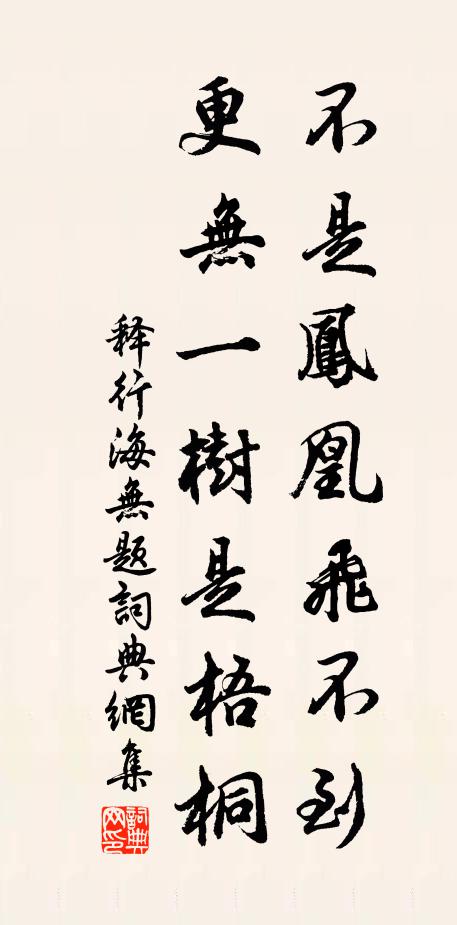 不是鳳凰飛不到
更無一樹是梧桐
释行海無题詞典網集
詞典網印